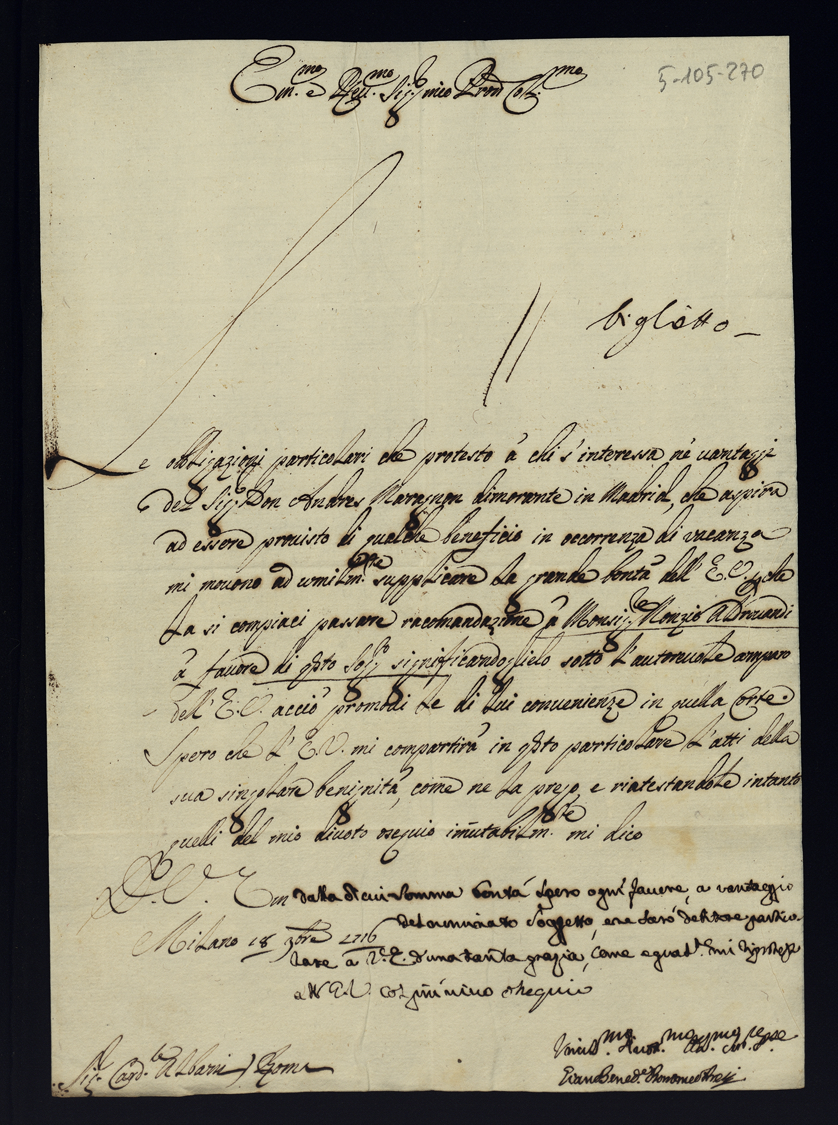 Em.mo e Rev.mo Sig.r mio P̃ron Col.mo
5-105-270
biglietto
Le obbligazioni particolari che protesto à chi s'interessa nè vantaggi
del Sig.r Don Andres Maragnon dimorante in Madrid, che aspira
ad essere provisto di qualche beneficio in occorrenza di vacanza
mi movono ad umilm.te supplicare la grande bontà dell' E.V. che
la si compiaci passare racomandaz.ne à Monsig.re Nonzio Aldrovandi
à favore di q̃sto Sog.o significandoglielo sotto l'autorevole amparo
dell' E.V. acciò promovi le di lui convenienze in quella Corte.
Spero che l' E.V. mi compartirà in q̃sto particolare l'atti della
sua singolare benignità, come ne la prego, e riatestandole intanto
quelli del mio divoto osequio im̃utabilm.te mi dico
D. V. Em dalla di cui somma bontà spero ogni favore, a vantaggio
del nominato soggetto, e ne sarò debitore partico
Milano 18 9bre 1716
lare à V.E. d'una tanta grazia, come egual.te mi
a V.E. col più vivo ossequio
Sig.r Card.le Albani) Roma
Gian Bened.o Borromeo Arese